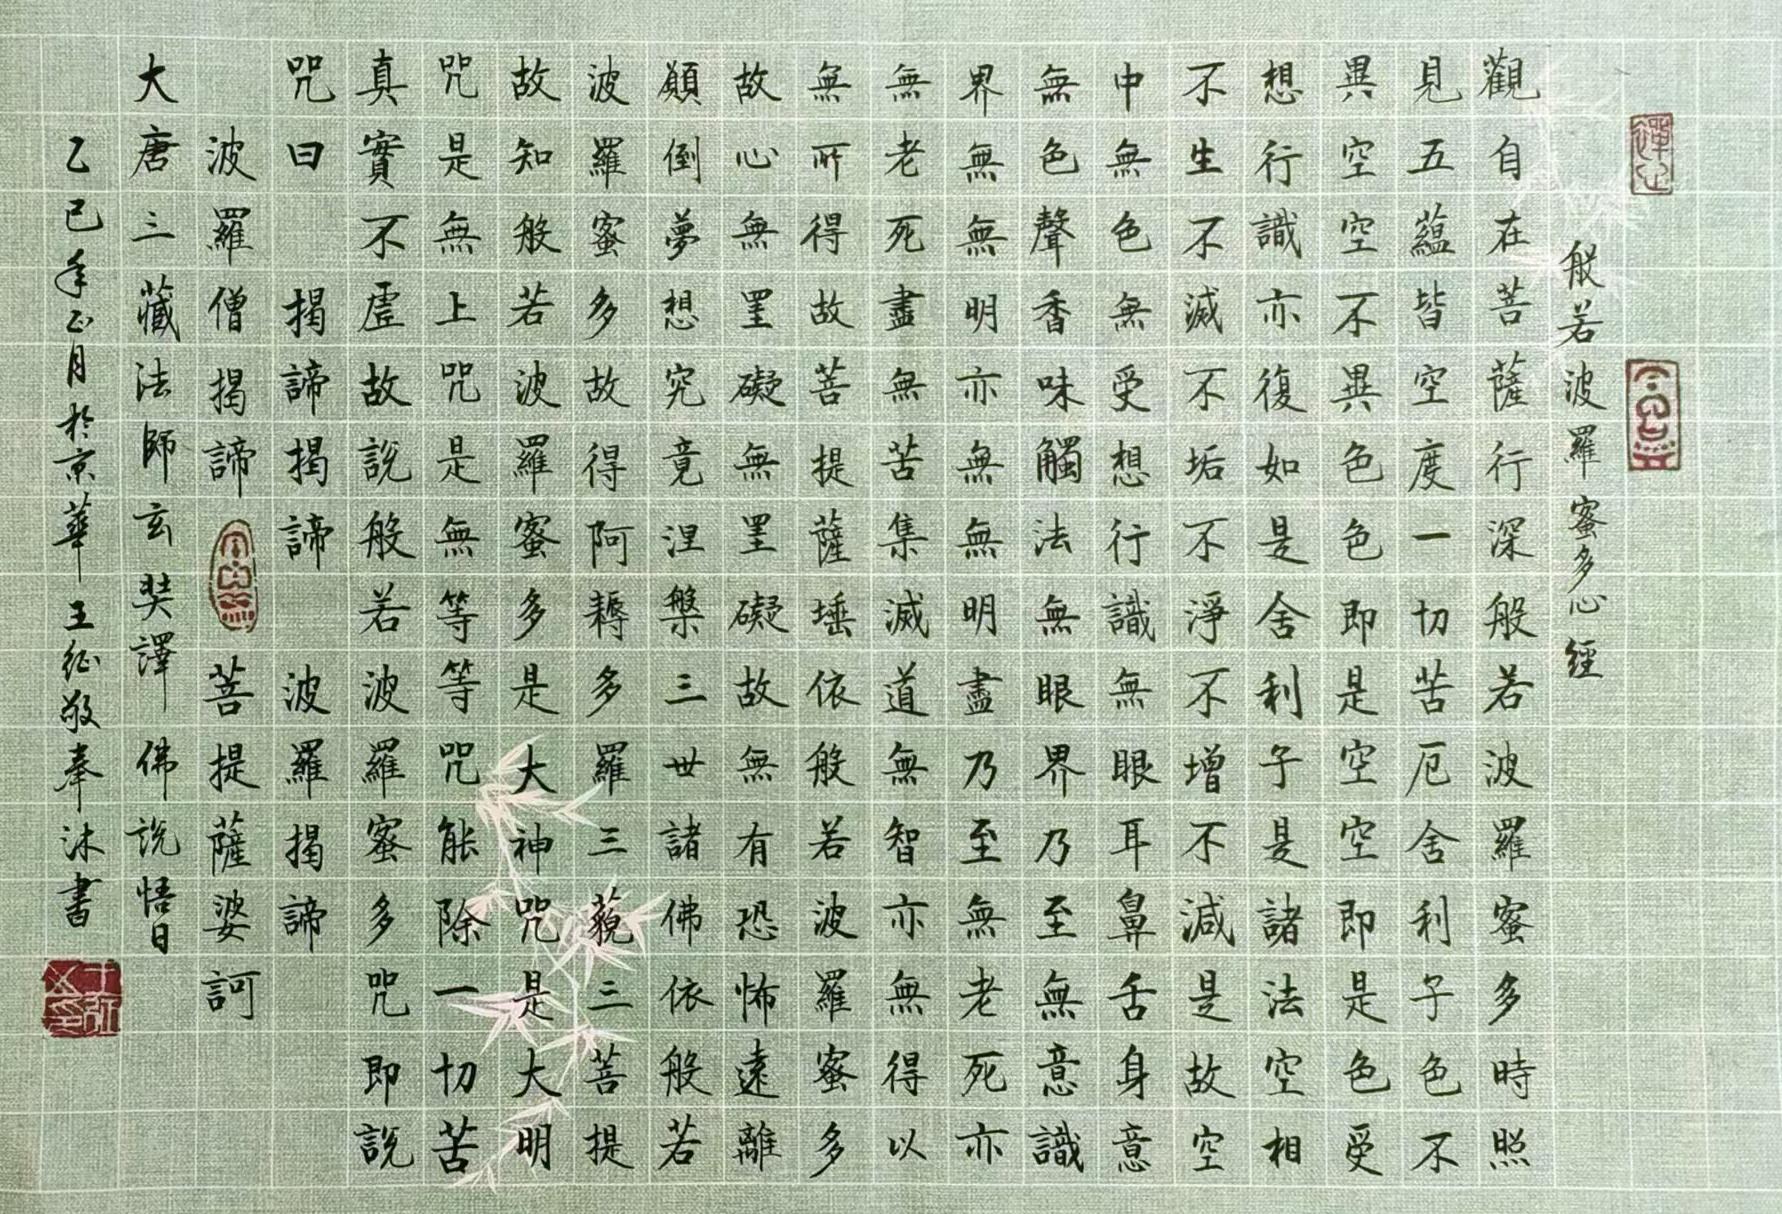 般若波羅蜜多心經
觀自在菩薩行深般若波羅蜜多時照
見五蘊皆空度一切苦厄舍利子色不
異空空不異色色即是空空即是色受
想行識亦復如是舍利子是諸法空相
不生不滅不垢不淨不增不減是故空
中無色無受想行識無眼耳鼻舌身意
無色聲香味觸法無眼界乃至無意識
界無無明亦無無明盡乃至無老死亦
無老死盡無苦集滅道無智亦無得以
無所得故菩提薩埵依般若波羅蜜多
故心無罣礙無罣礙故無有恐怖遠離
顛倒夢想究竟涅槃三世諸佛依般若
波羅蜜多故得阿耨多羅三藐三菩提
故知般若波羅蜜多是大神咒是大明
咒是無上咒是無等等咒能除一切苦
真實不虛故說般若波羅蜜多咒即說
咒曰 揭諦揭諦 波羅揭諦
波羅僧揭諦 菩提薩婆訶
大唐三藏法師玄奘譯 佛說悟日
乙巳年正月於京華 王征敬奉沐書